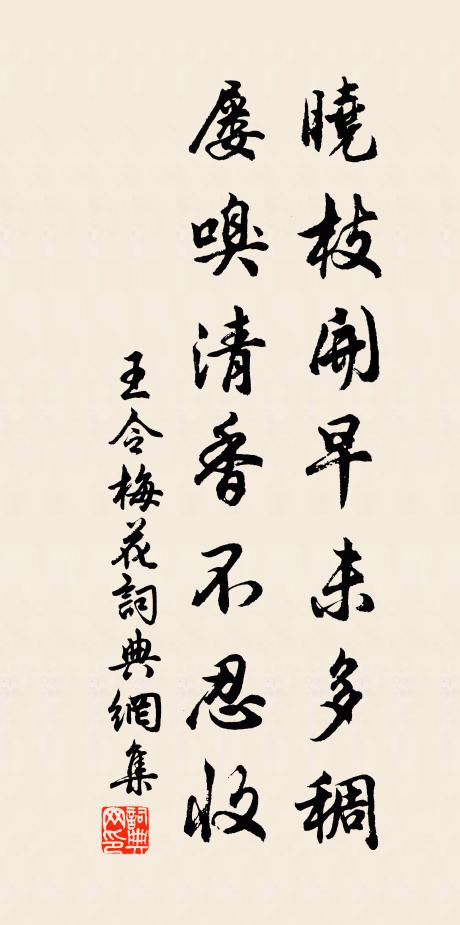 曉枝開早未多稠
屡嗅清香不忍收
王令梅花詞典網集
詞典网印